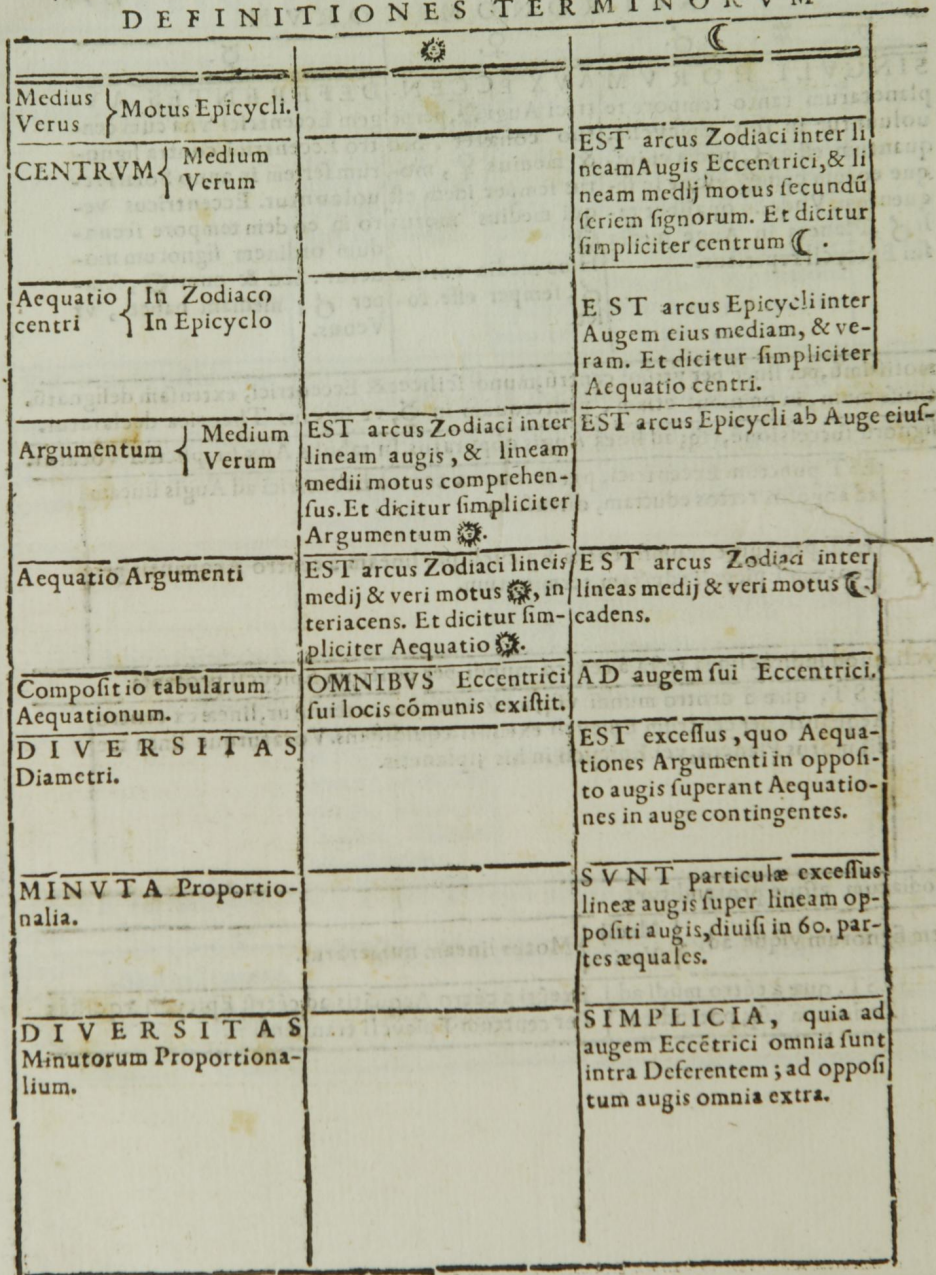 DEFINITIONES TERMINORVM
☉ ☾
Medius
Verus } Motus Epicycli.
CENTRVM { Medium
Verum
EST arcus Zodiaci inter li
neam Augis Eccentrici, & li
neam medij motus ſecundū
ſeriem ſignorum. Et dicitur
ſimpliciter centrum ☾.
Aequatio { In Zodiaco
centri { In Epicyclo
EST arcus Epicycli inter
Augem eius mediam, & ve-
ram. Et dicitur ſimpliciter
Aequatio centri.
Argumentum { Medium
Verum
EST arcus Zodiaci inter
lineam augis, & lineam
medii motus comprehen-
ſus. Et dicitur ſimpliciter
Argumentum ☉.
EST arcus Epicycli ab Auge eiuſ-
Aequatio Argumenti
EST arcus Zodiaci lineis
medij & veri motus ☉, in
teriacens. Et dicitur ſim-
pliciter Aequatio ☉.
EST arcus Zodiaci inter
lineas medij & veri motus ☾.
cadens.
Compoſitio tabularum
Aequationum.
OMNIBVS Eccentrici
ſui locis cōmunis exiſtit.
AD augem ſui Eccentrici.
DIVERSITAS
Diametri.
EST exceſſus, quo Aequa-
tiones Argumenti in oppoſi-
to augis ſuperant Aequatio-
nes in auge contingentes.
MINVTA Proportio-
nalia.
SVNT particulæ exceſſus
lineæ augis ſuper lineam op-
poſiti augis, diuiſi in 60. par-
tes æquales.
DIVERSITAS
Minutorum Proportiona-
lium.
SIMPLICIA, quia ad
augem Eccētrici omnia ſunt
intra Deferentem; ad oppoſi
tum augis omnia extra.